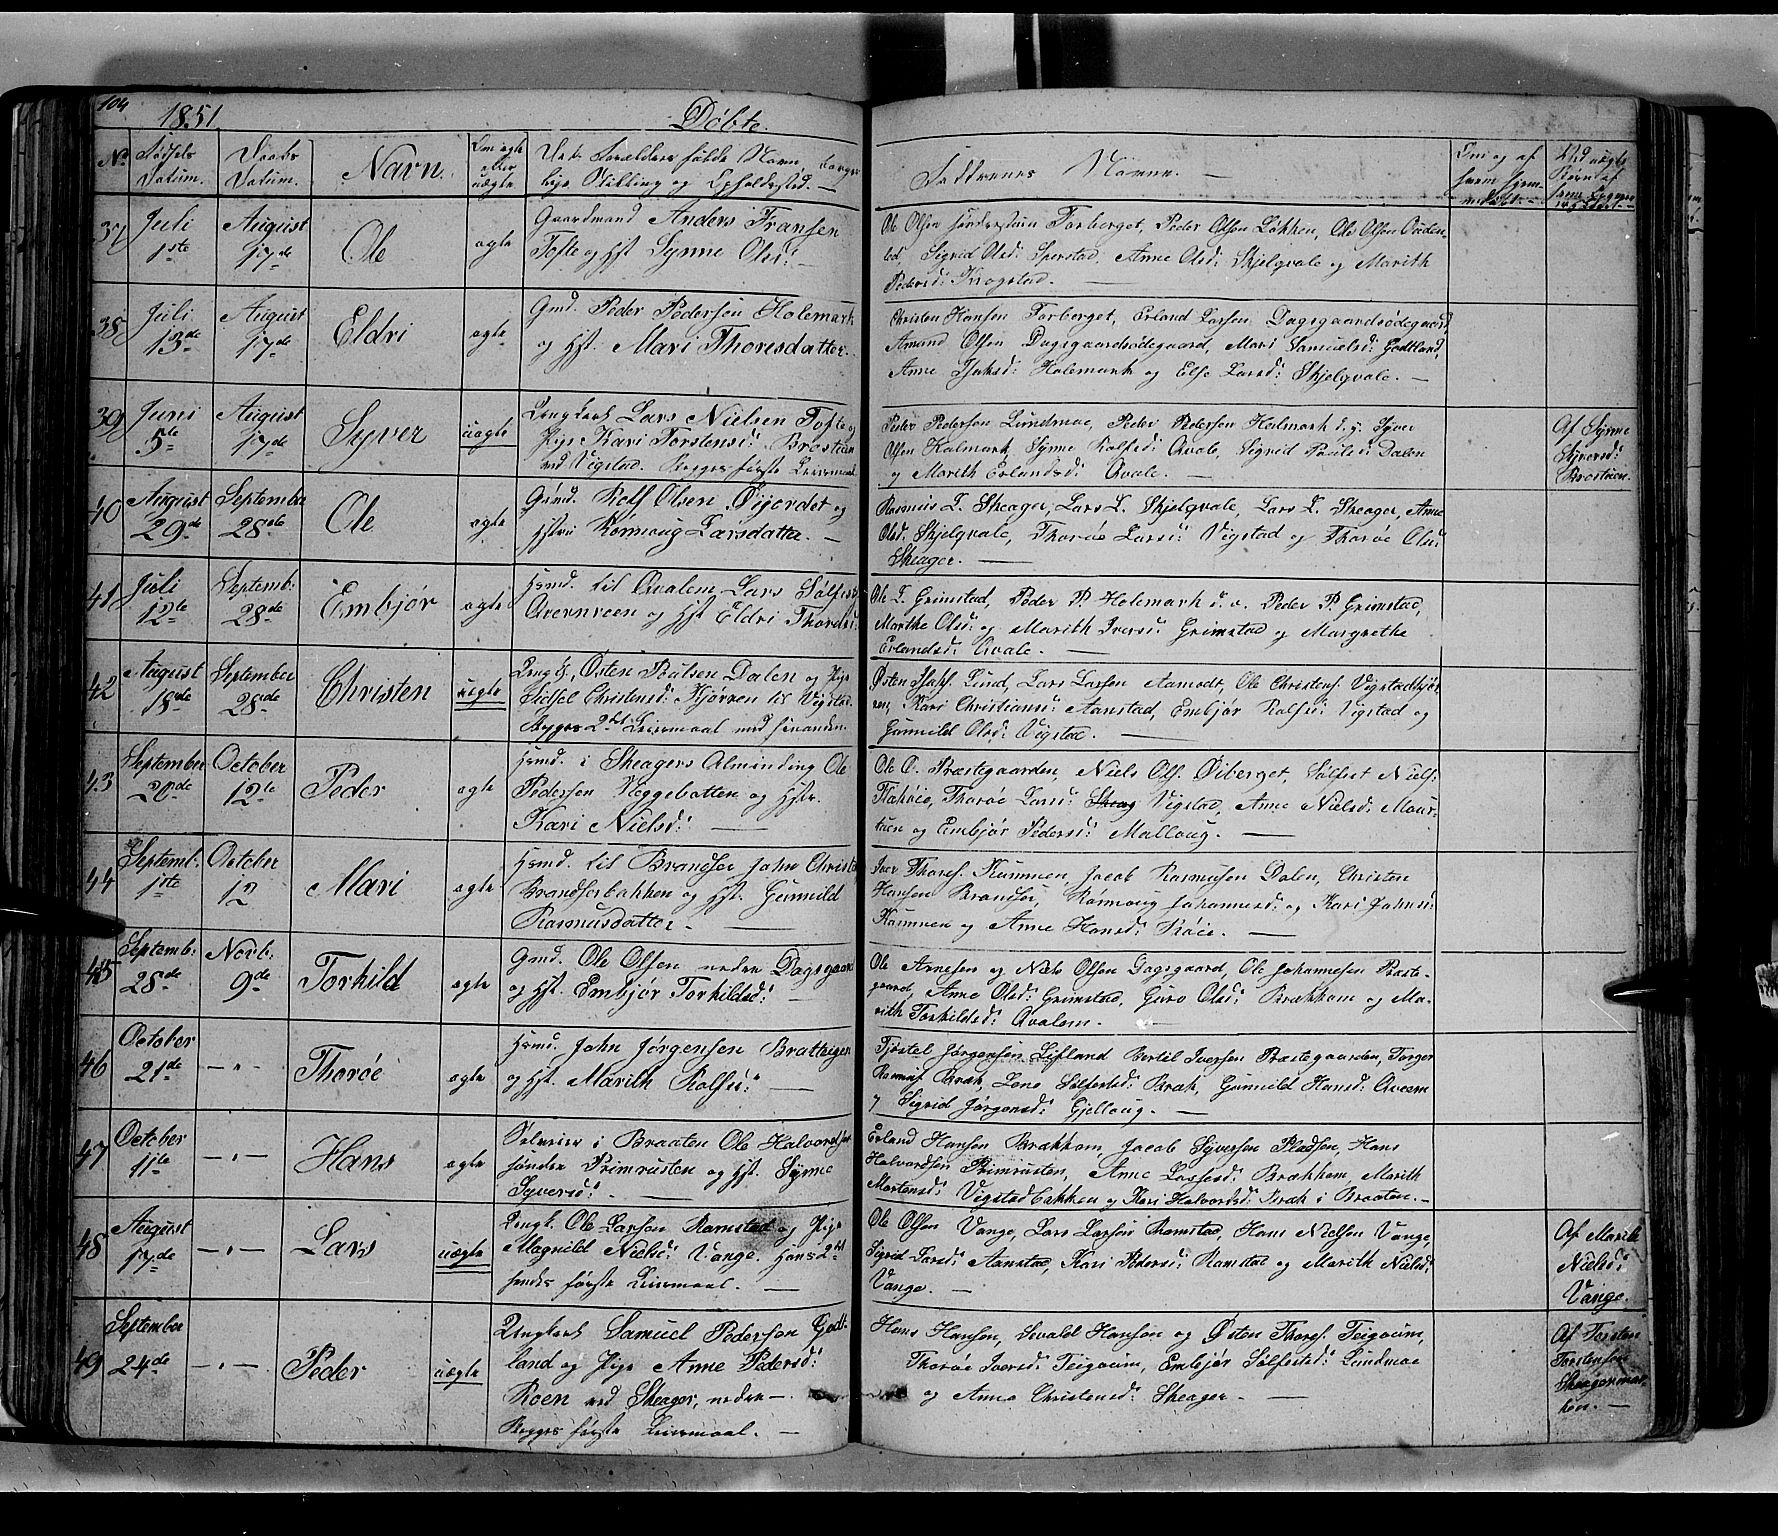 104
1851. Döbte.
No. Fødsels Datum. Daabs Datum. Navn. Om ægte eller uægte Forældrenes fulde Navn, Stilling og Opholdssted. —
Faddrenes Navne. —
37 Juli 1ste August 17de Ole ægte Gaardmand Anders Fransen
Tofte og Hst. Synne Olsd: —
Ole Olsen Forberget, Peder Olsen Løkken, Ole Olsen
Sigrid Olsd: Sperstad, Anne Olsd: Skjelqvale og Marith
Pedersd: Krogstad. —
38 Juli 13de August 17de Eldri ægte Gmd. Peder Pedersen Holemark
og Hst. Mari Thoresdatter. —
Christen Hansen Forberget, Erland Larsen Dagsgaardsødegaard,
Amund Olsen Dagsgaardsødegaard, Mari Samuelsd: Godtland,
Anne Isaksd: Holemark og Else Larsd: Skjelqvale. —
39 Juni 5te August 17de Syver uægte Ungkarl Lars Nielsen Tofte og
Pige Kari Torstensd: Brostuen
ved Vigstad. Begges første Leiermaal.
Peder Pedersen Lundmoe, Peder Pedersen Holmark d. y. Syver
Olsen Holmark, Synne Rolfsd: Qvale, Sigrid Poulsd: Dalen
og Marith Erlandsd: Qvale. —
Af Synne
Syversd:
Brostuen.
40 August 29de September 28de Ole ægte Gmd. Rolf Olsen Øijordet og
Hstru Ronnoug Larsdatter. —
Rasmus L. Skeager, Lars L. Skjelqvale, Lars L. Skeager, Anne
Olsd: Skjelqvale, Thorøe Larsd: Vigstad og Thorøe Olsd:
Skeager. —
41 Juli 12te Septemb: 28de Embjør ægte Hsmd. til Qvalem Lars Sølfest:
Qvernveen og Hst Eldri Thordsd:
Ole T. Grimstad, Peder P. Holemark d. e. Peder P. Grimstad,
Marthe Olsd: og Marith Iversd: Grimstad og Margrethe
Erlandsd: Qvale. —
42 August 18de September 28de Christen uægte Ungk. Østen Poulsen Dalen og Pige
Eldsel Christensd: Kjørren til Vigstad.
Begges 2det Leiermaal med hinanden.
Østen Isaks: Lund, Lars Larsen Aamodt, Ole Christens: Vigstadkjør-
ren, Kari Christiansd: Aanstad, Embjør Rolfsd: Vigstad og
Gunnild Olsd: Vigstad. —
43 September 20de October 12te Peder ægte Hsmd. i Skeagers Alminding Ole
Pedersen Veggebotten og Hstr.
Kari Nielsd: —
Ole O. Præstegaarden, Niels Ols. Øiberget, Sølfest Niels:
Flakøie, Thorøe Larsd: Vigstad, Anne Nielsd:
og Embjør Pedersd: Malloug. —
44 Septemb: 1ste October 12 Mari ægte Hsmd. til Brandsør John Christ:
Brandsørbakken og Hst. Gunnild
Rasmusdatter. —
Iver Thores: Rumnen, Jacob Rasmusen Dalen, Christen
Hansen Brandsør, Rønnoug Johannesd: og Kari Johnsd:
Rumnen og Anne Hansd: Røie. —
45 Septemb: 28de Novb. 9de Torkild ægte Gmd. Ole Olsen nedre Dagsgaard
og Hst. Embjør Torkildsd: —
Ole Arnesen og Niels Olsen Dagsgaard, Ole Johannesen Præste-
gaard, Anne Olsd: Grimstad, Guro Olsd: Brækkom og Ma-
rith Torkildsd: Qvalem. —
46 October 21de — " — Thorøe ægte Hsmd. John Jørgensen Bratteigen
og Hst. Marith Rolfsd: —
Tjøstel Jørgensen Lifland Bertel Iversen Præstegaarden, Torger
Rasmus: Bræk, Lene Sølfestsd: Bræk, Gunnild Hansd: Qveem
og Sigrid Jørgensd: Gjelloug. —
47 October 11te — " — Hans ægte Selveier i Braaten Ole Halvordsen
søndre Primrusten og Hst. Synne
Syversd: —
Erland Hansen Brækkom, Jacob Syversen Pladsen, Hans
Halvordsen Primrusten, Anne Larsd: Brækkom, Marith
Mortensd: Vigstadbakken og Kari Halvordsd: Bræk i Braaten. —
48 August 17de — " — Lars uægte Ungk. Ole Larsen Ramstad og Pige
Magnild Nielsd: Vange. Hans 2det
hendes første Leiermaal. —
Ole Olsen Vange, Lars Larsen Ramstad, Hans Nielsen Vange,
Sigrid Larsd: Aanstad, Kari Pedersd: Ramstad og Marith Nielsd:
Vange. —
Af Marith
Nielsd:
Vange.
49 September 24de — " — Peder uægte Ungkarl Samuel Pederson Godt-
land og Pige Anne Pedersd:
Roen ved Skeager, nedre —
Begges første Leiermaal. —
Hans Hansen, Sevald Hansen og Østen Thores: Teigoum,
Thorøe Iversd: Teigoum, Embjør Sølfestsd: Lundmoe
og Anne Christensd: Skeager. —
Af Torsten
Torstensen
Skeagermar-
ken. —